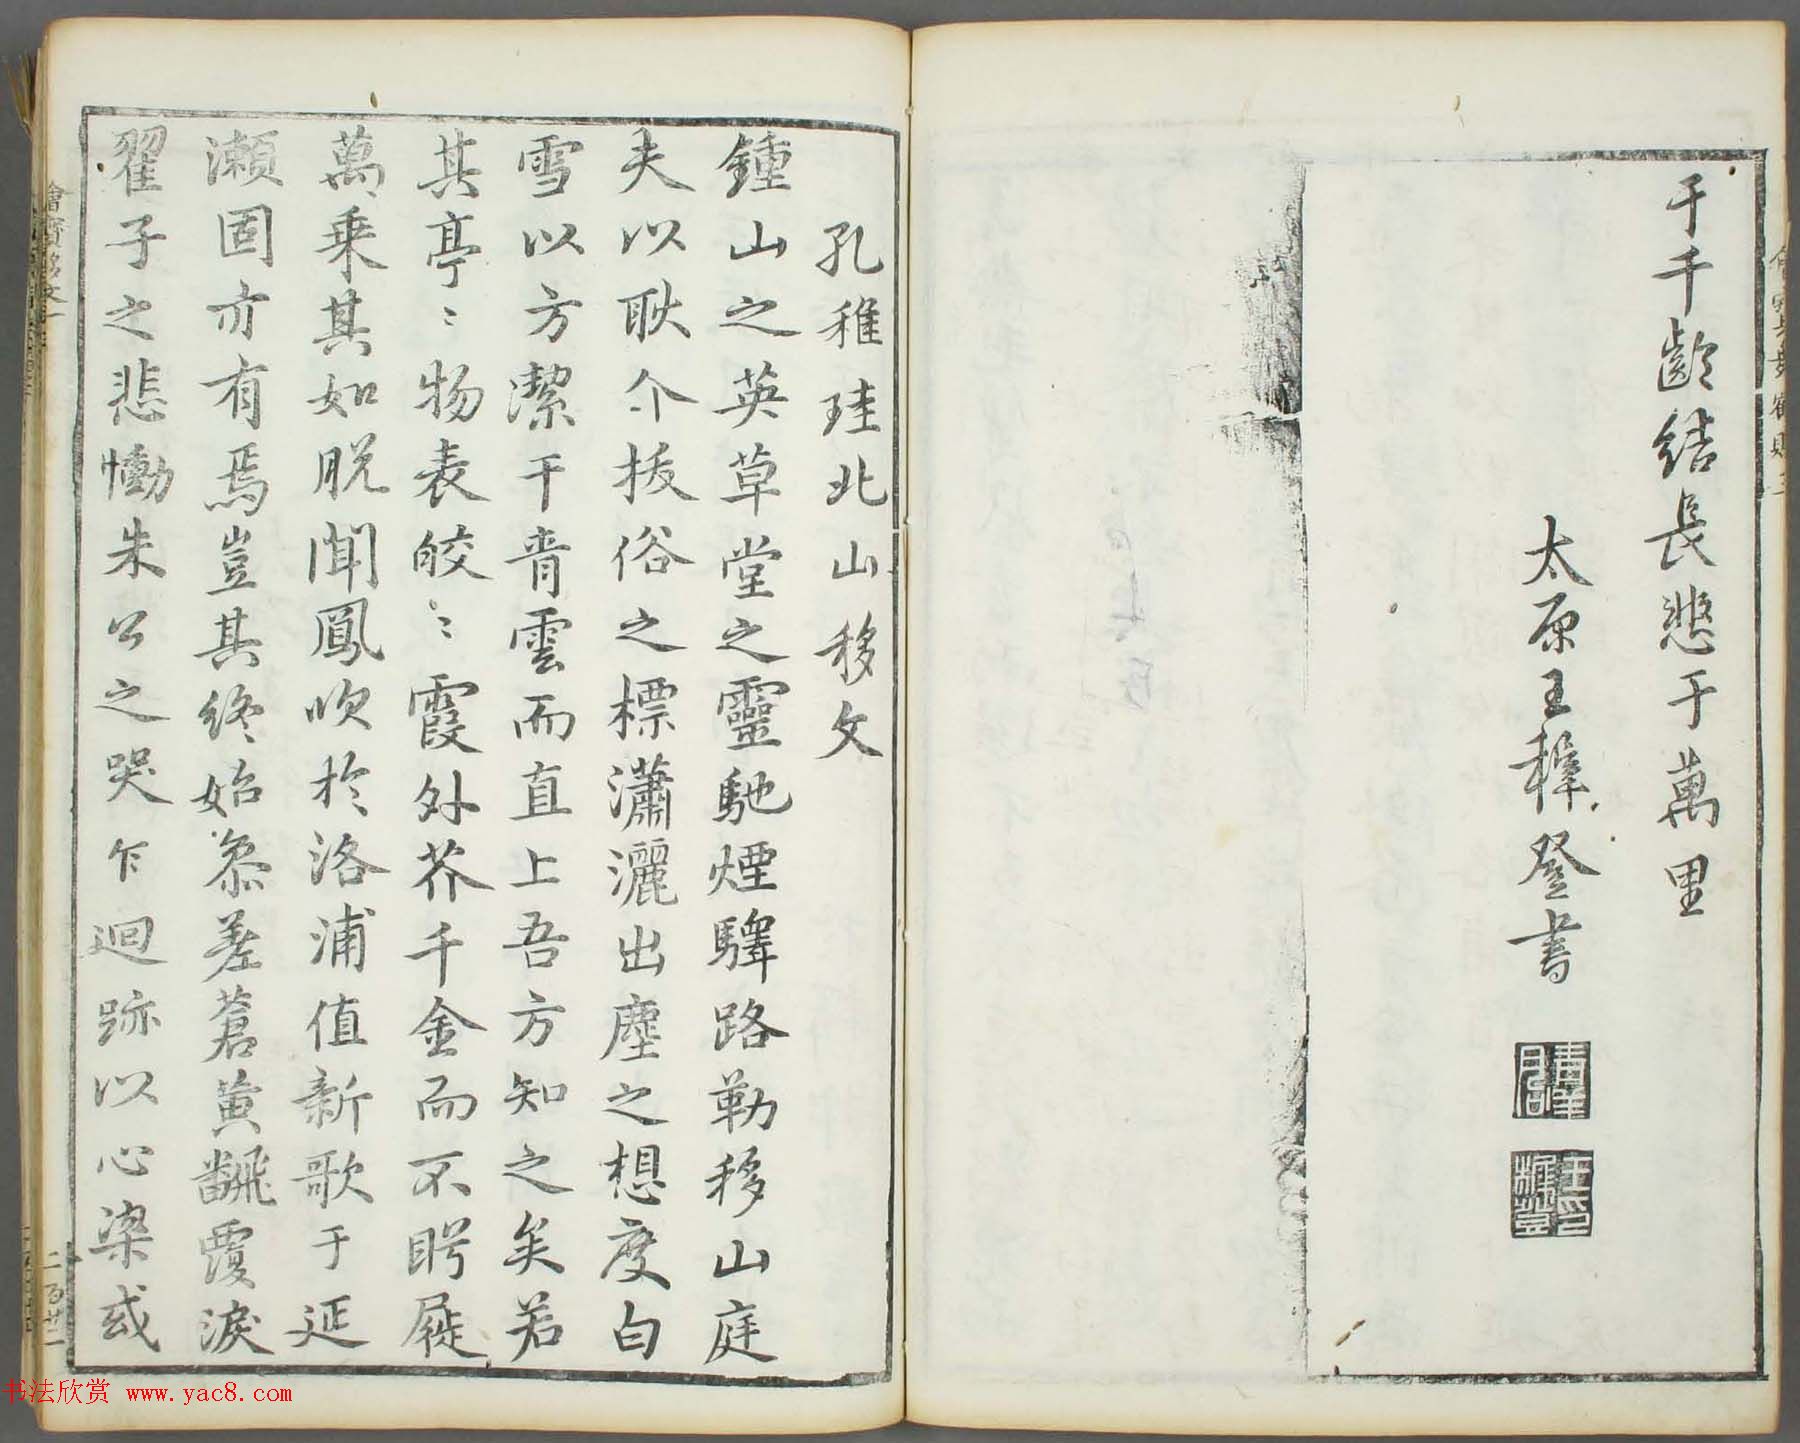 于千齡結長悲于萬里
太原王穉登書
孔稚珪北山移文
鍾山之英草堂之靈馳煙驛路勒移山庭
夫以耿介拔俗之標瀟灑出塵之想度白
雪以方潔干青雲而直上吾方知之矣若
其亭〻物表皎〻霞外芥千金而不眄屣
萬乘其如脫聞鳳吹於洛浦值新歌于延
瀨固亦有焉豈其終始叅差蒼黃翻覆淚
翟子之悲慟朱公之哭乍迴跡以心染或
二百廿二
书法欣赏 www.yac8.com